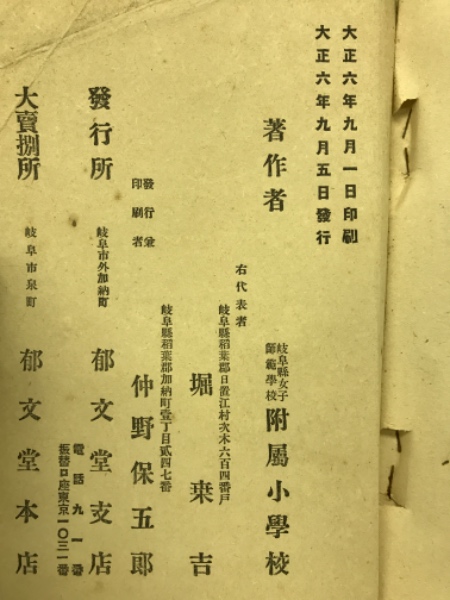 大正六年九月一日印刷
大正六年九月五日發行
著作者
岐阜縣女子
師範學校
附屬小學校
右代表者
岐阜縣稻葉郡日置江村次木六百四番戶
堀 吉
發行兼
印刷者
岐阜縣稻葉郡加納町壹丁目貳四七番
仲野保五郎
發行所
岐阜市外加納町
郁文堂支店
電話九一番
振替口座東京一〇三一番
大賣捌所
岐阜市泉町
郁文堂本店